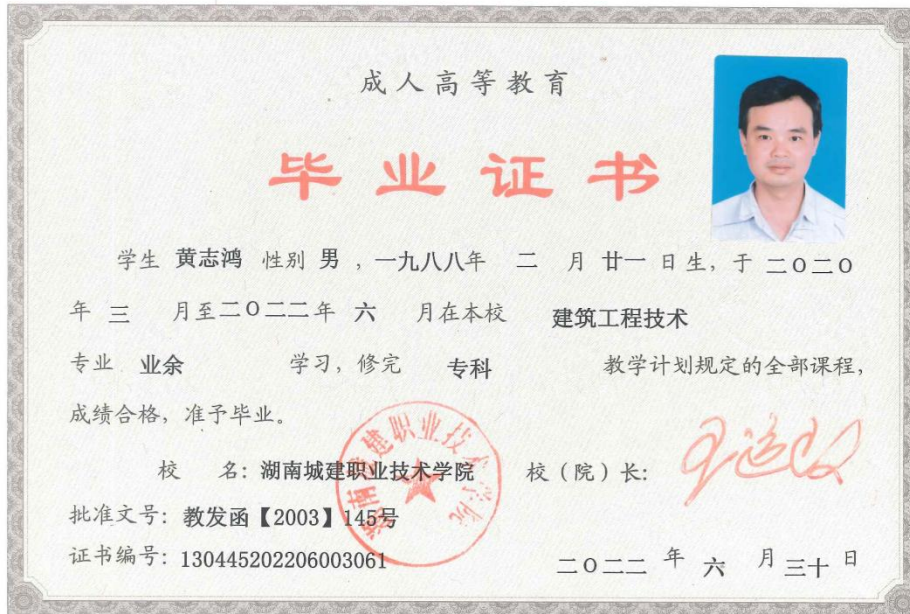 成人高等教育
毕业证书
学生 黄志鸿 性别 男 ,一九八八年 二 月 廿一 日生, 于 二〇二〇
年 三 月至二〇二二年 六 月在本校 建筑工程技术
专业 业余 学习, 修完 专科 教学计划规定的全部课程,
成绩合格, 准予毕业。
校 名: 湖南城建职业技术学院 校(院)长:
湖南城建职业技术学院
批准文号: 教发函【2003】145号
证书编号: 130445202206003061
二〇二二 年 六 月 三十 日